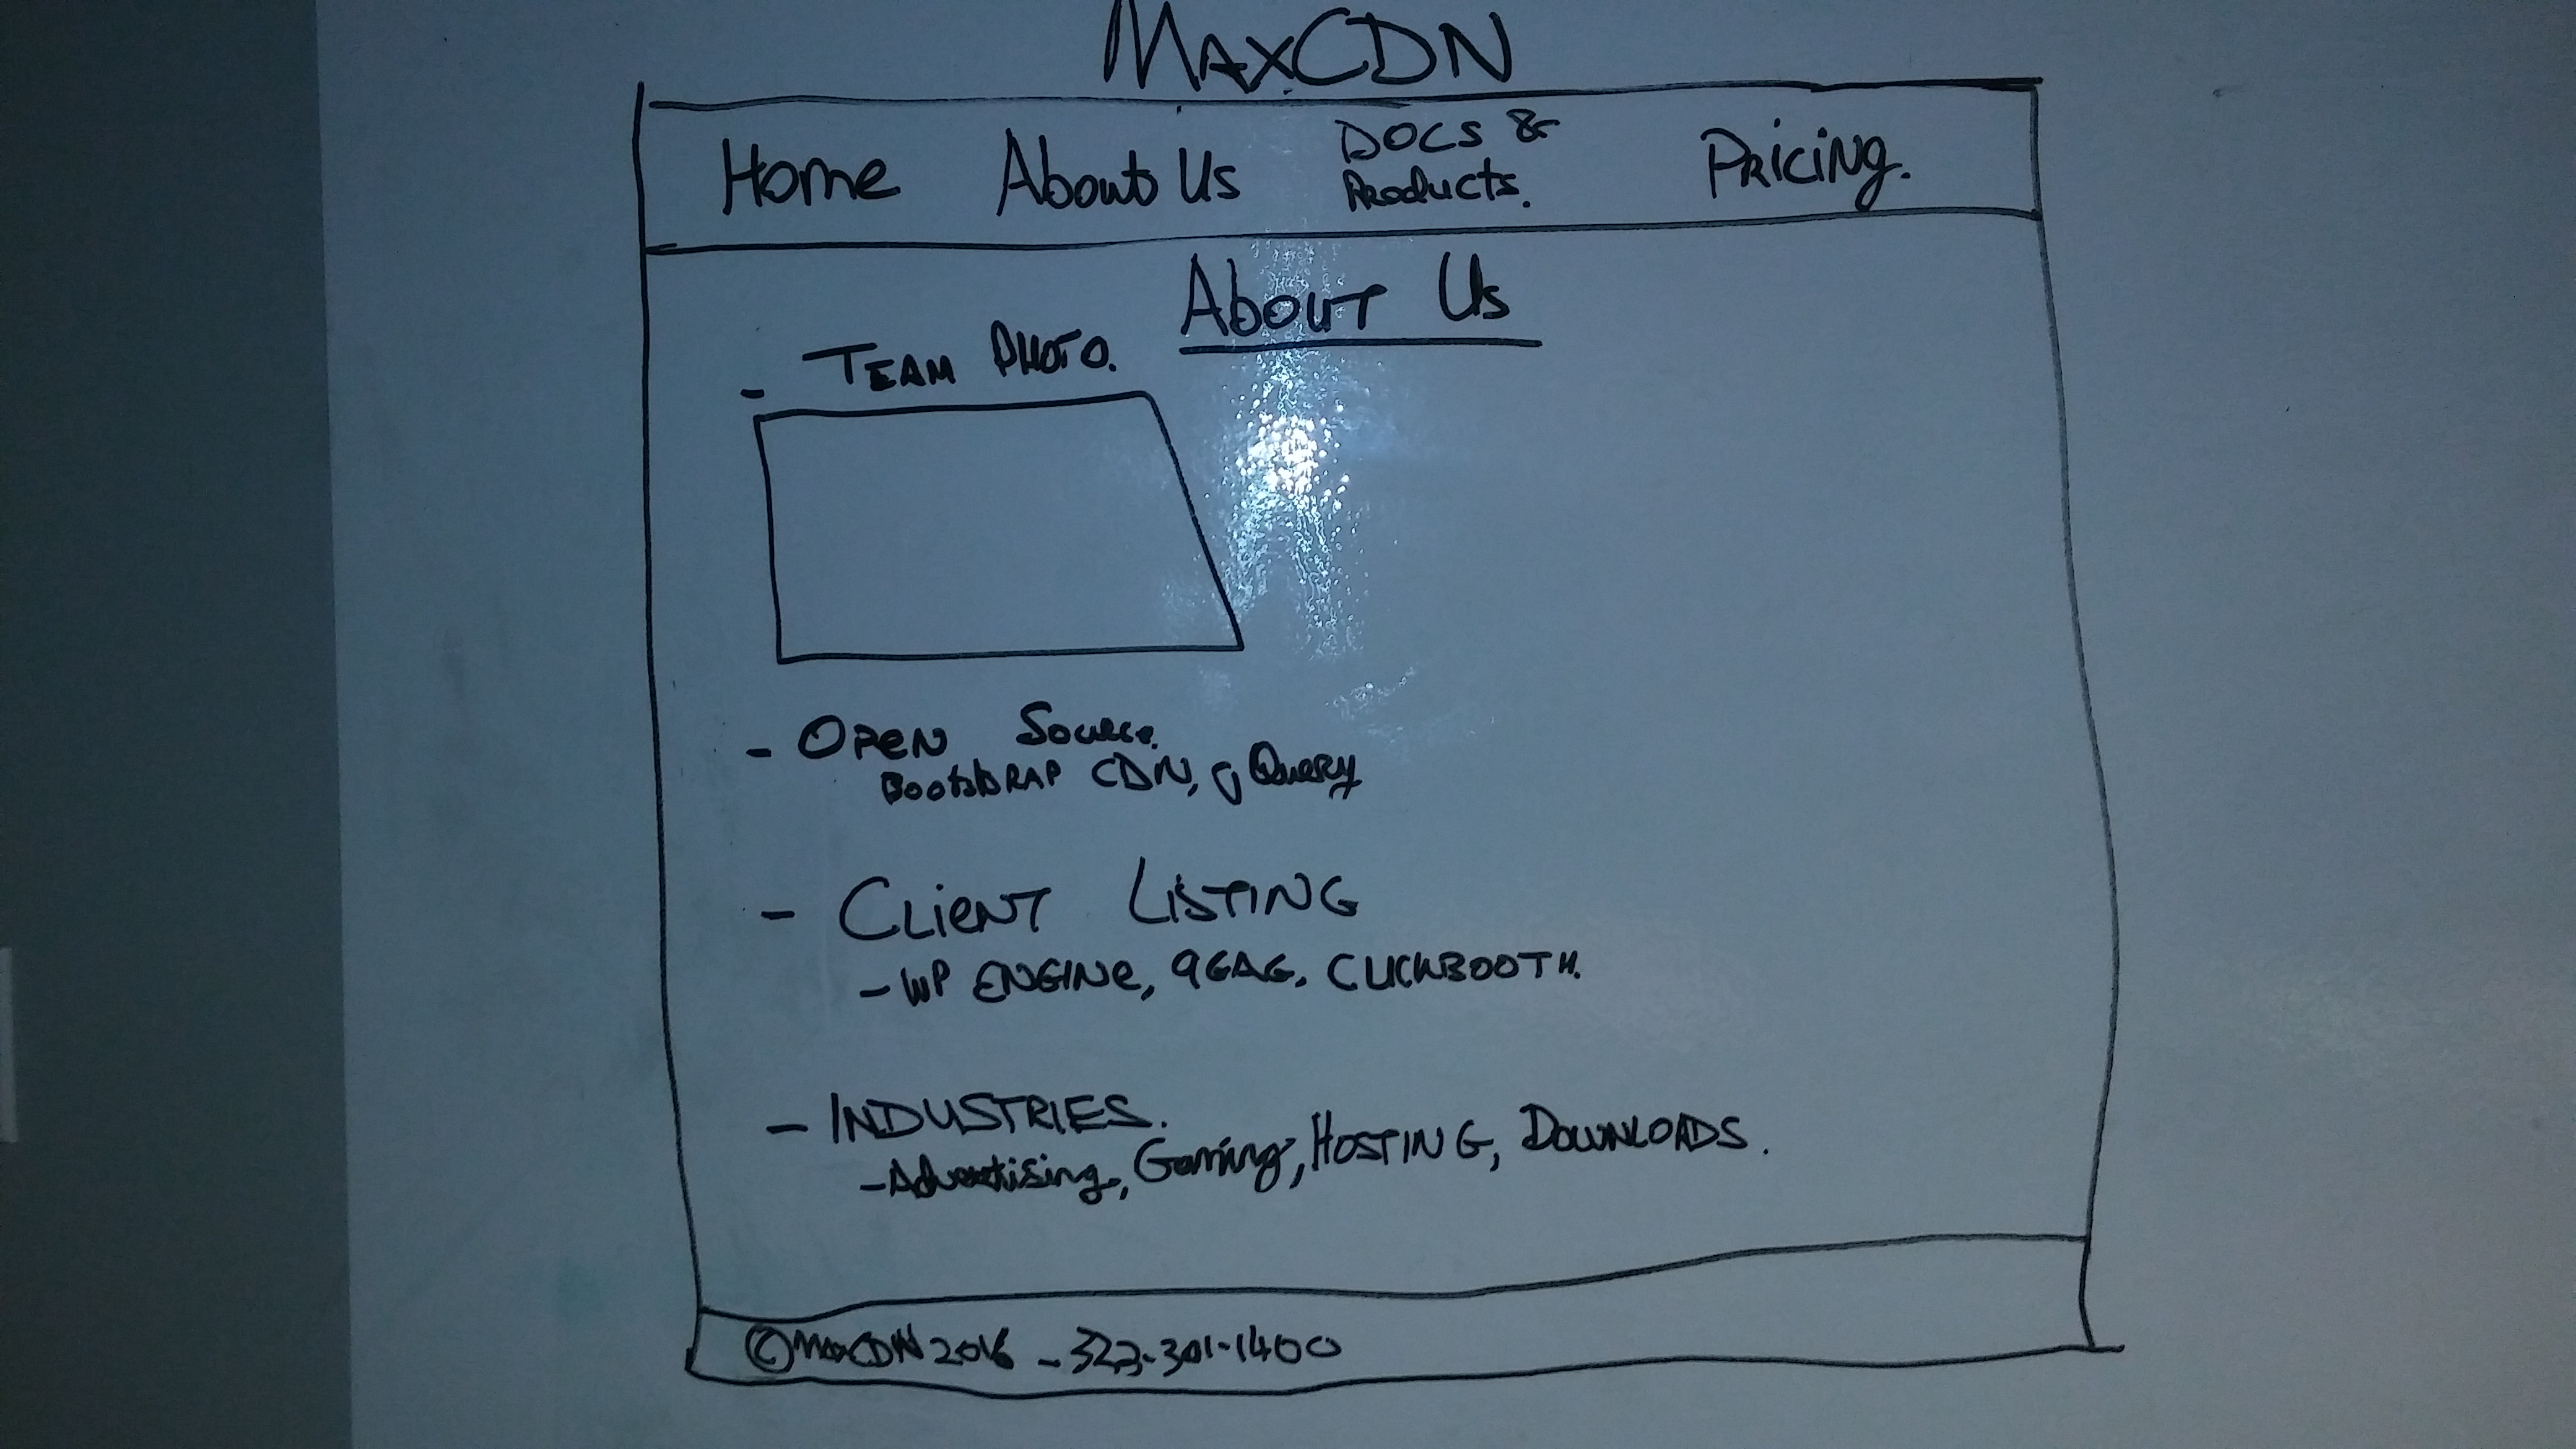 MAXCDN
Home About Us DOCS & Products. Pricing.
About Us
- TEAM PHOTO.
- OPEN Source.
Bootstrap CDN, jQuery
- CLIENT LISTING
- WP ENGINE, 9GAG, CLICKBOOTH.
- INDUSTRIES.
- Advertising, Gaming, HOSTING, DOWNLOADS.
© MaxCDN 2016 - 323-301-1400